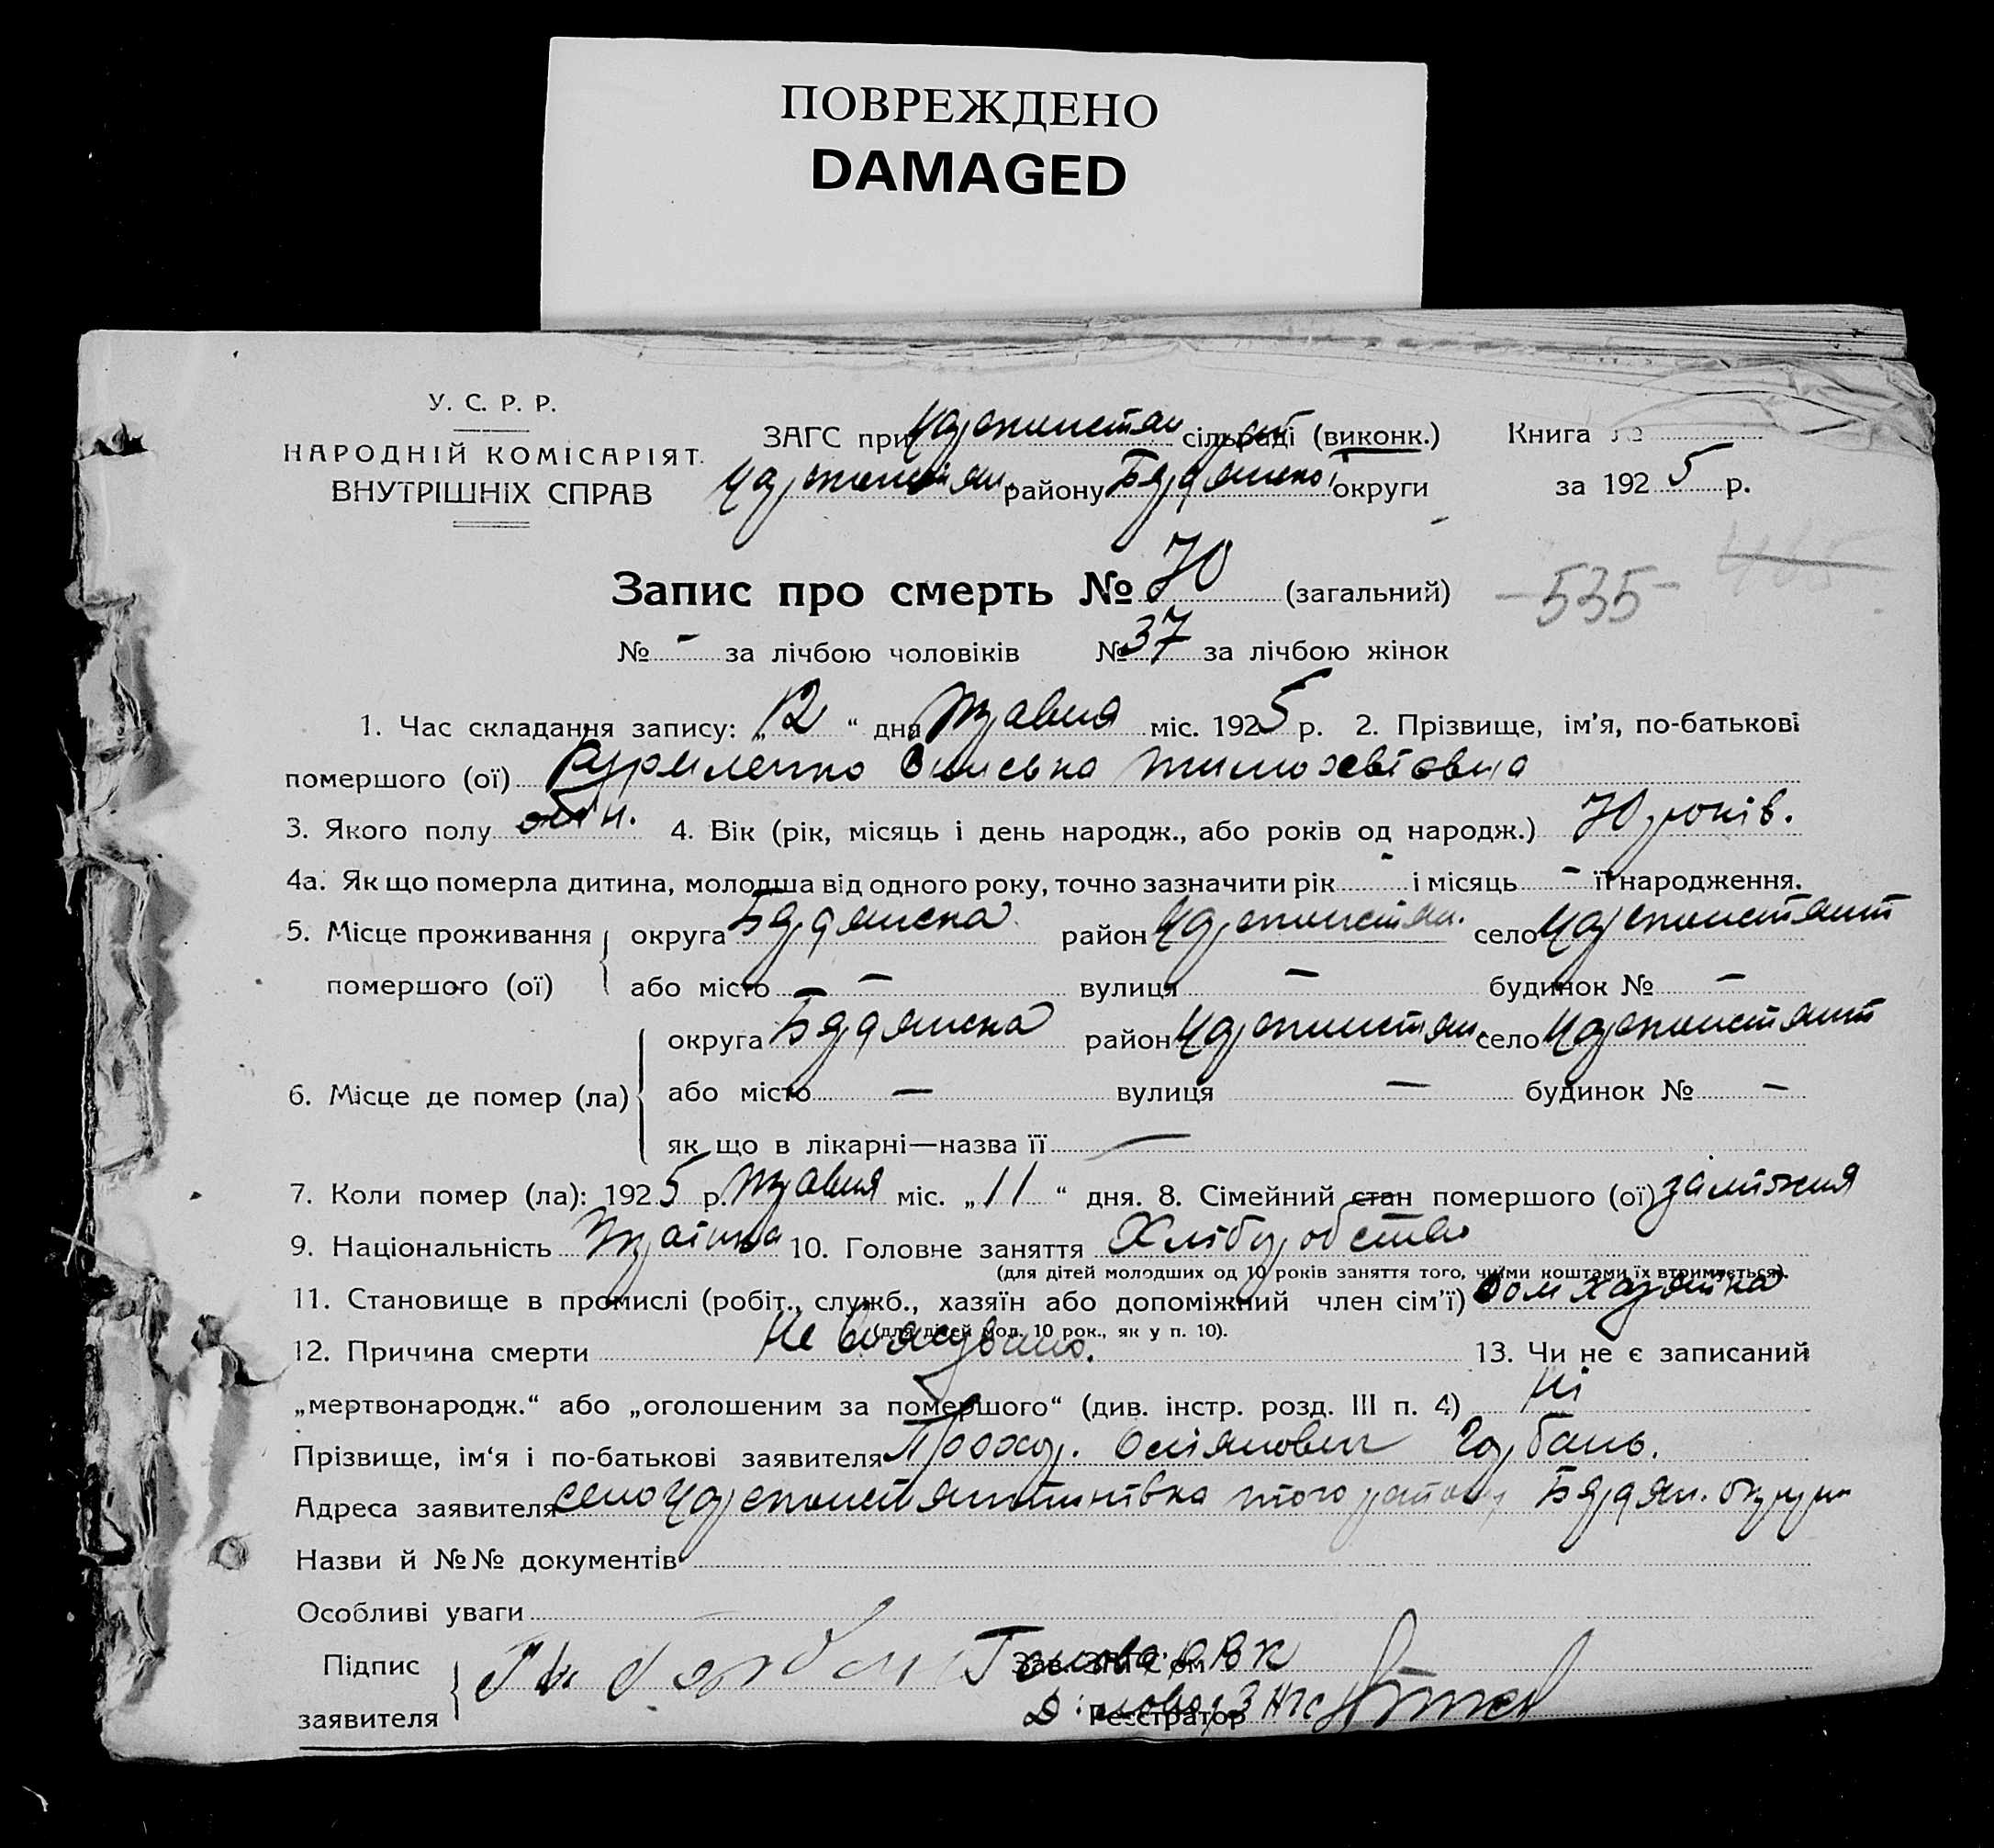 ПОВРЕЖДЕНО
DAMAGED
У. С. Р. Р.
НАРОДНІЙ КОМІСАРІЯТ
ВНУТРІШНІХ СПРАВ
ЗАГС при сільраді (виконк.)
району Бердянської округи
Книга №
за 1925 р.
Запис про смерть № 70 (загальний)
-535-
№ - за лічбою чоловіків № 37 за лічбою жінок
1. Час складання запису: „12“ дня Травня міс. 1925 р. 2. Прізвище, ім'я, по-батькові
помершого (ої)
3. Якого полу 4. Вік (рік, місяць і день народж., або років од народж.) 70 років.
4а. Як що померла дитина, молодша від одного року, точно зазначити рік - і місяць - її народження.
5. Місце проживання помершого (ої) округа Бердянска район село
або місто — вулиця — будинок № —
6. Місце де помер (ла) округа Бердянска район село
або місто — вулиця — будинок № —
як що в лікарні—назва її —
7. Коли помер (ла): 1925 р. Травня міс. „11“ дня. 8. Сімейний стан помершого (ої) заміжня
9. Національність 10. Головне заняття Хліборобство
(для дітей молодших од 10 років заняття того, чиїми коштами їх втримується).
11. Становище в промислі (робіт., служб., хазяїн або допоміжний член сім'ї) Домхазяйка
(для дітей мол. 10 рок., як у п. 10).
12. Причина смерти Не 13. Чи не є записаний
„мертвонародж.“ або „оголошеним за помершого“ (див. інстр. розд. III п. 4) Ні
Прізвище, ім'я і по-батькові заявителя Прохор. Горбань.
Адреса заявителя село того району Бердян. округи
Назви й №№ документів
Особливі уваги
Підпис заявителя Голова РВК
Діловод ЗАГС
Реєстратор